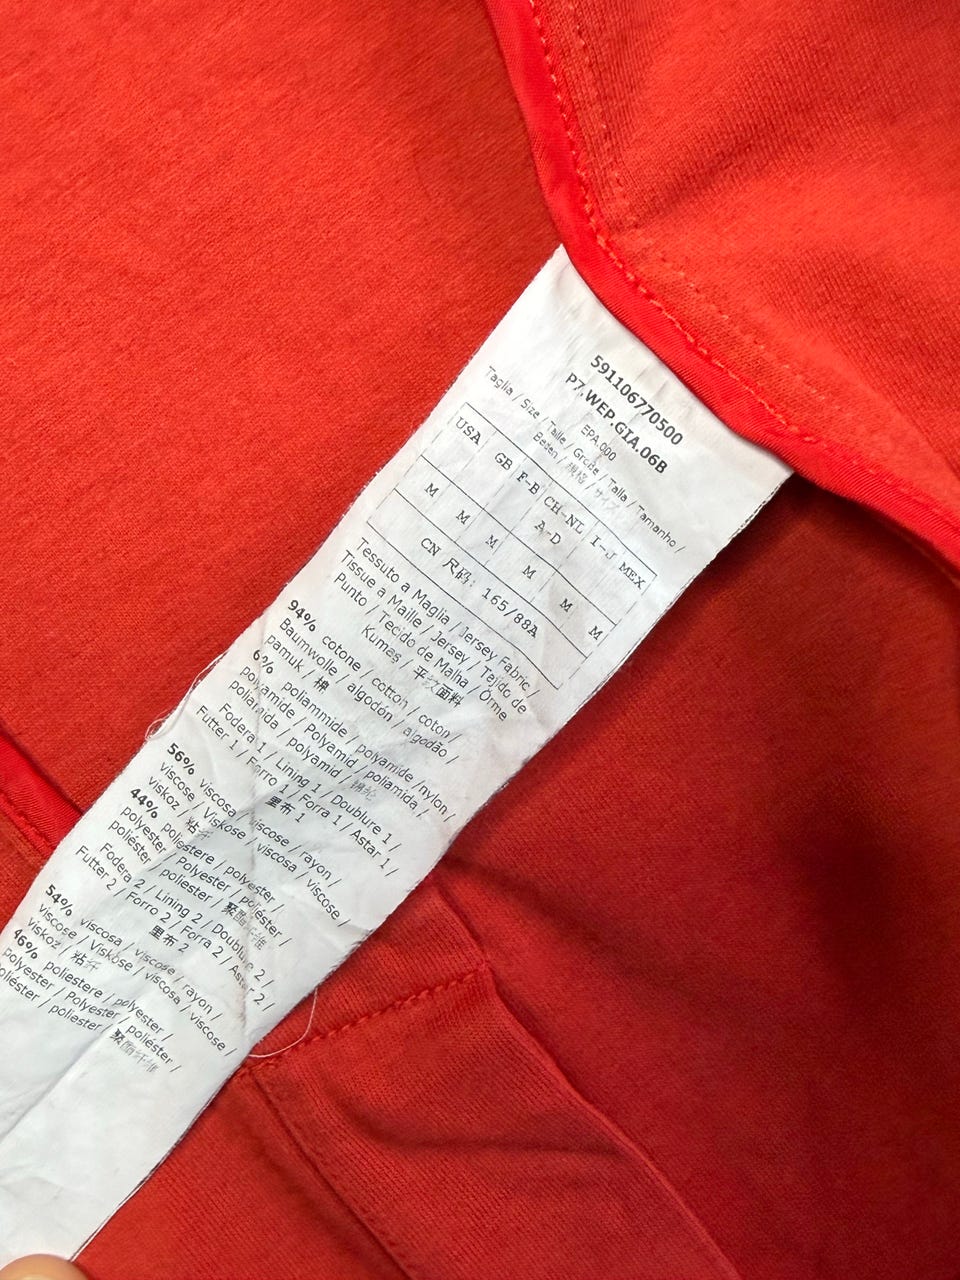 591106770500
P7.WEP.GIA.06B
EPA.000
Taglia / Size / Taille / Größe / Talla / Tamanho /
Beden / 規格 / サイズ
USA GB F-B CH-NL I-J MEX
A-D
M M M M M M
CN 尺码: 165/88A
Tessuto a Maglia / Jersey Fabric /
Tissue à Maille / Jersey / Tejido de
Punto / Tecido de Malha / Örme
Kumaş / 平纹面料
94% cotone / cotton / coton /
Baumwolle / algodón / algodão /
pamuk / 棉
6% poliammide / polyamide /nylon /
polyamide / Polyamid / poliamida /
poliamida / polyamid / 锦纶
Fodera 1 / Lining 1 / Doublure 1 /
Futter 1 / Forro 1 / Forra 1 / Astar 1 /
里布 1
56% viscosa / viscose / rayon /
viscose / Viskose / viscosa / viscose /
viskoz / 粘纤
44% poliestere / polyester /
polyester / Polyester / poliéster /
poliéster / poliester / 聚酯纤维
Fodera 2 / Lining 2 / Doublure 2 /
Futter 2 / Forro 2 / Forra 2 / Astar 2 /
里布 2
54% viscosa / viscose / rayon /
viscose / Viskose / viscosa / viscose /
viskoz / 粘纤
46% poliestere / polyester /
polyester / Polyester / poliéster /
poliéster / poliester / 聚酯纤维